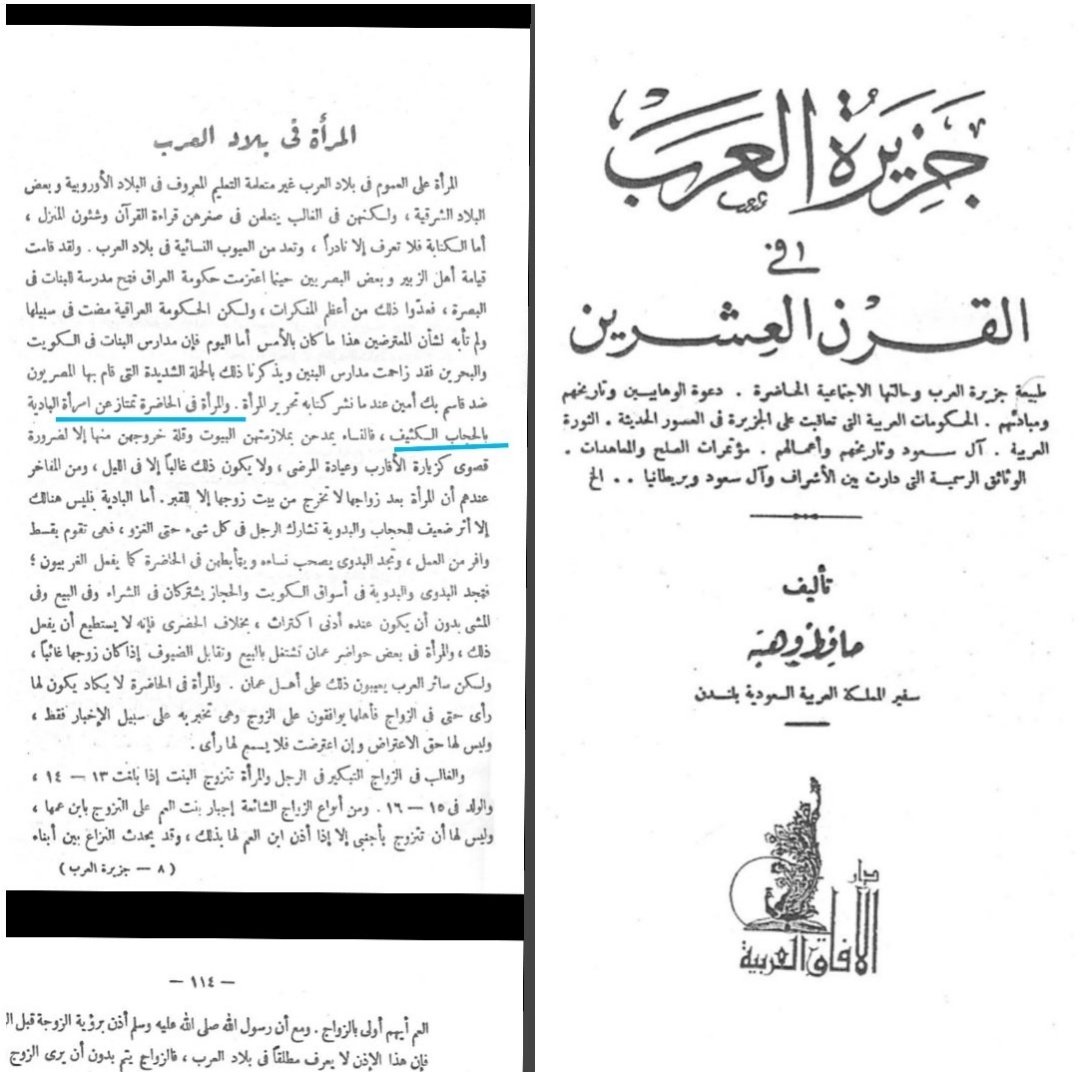 المرأة فى بلاد العرب
المرأة على العموم فى بلاد العرب غير متعلمة التعليم المعروف فى البلاد الأوروبية وبعض
البلاد الشرقية ، ولكنهن فى الغالب يتعلمن فى صغرهن قراءة القرآن وشئون المنزل ،
أما الكتابة فلا تعرف إلا نادراً ، وتعد من العيوب النسائية فى بلاد العرب . ولقد قامت
قيامة أهل الزبير وبعض البصريين حينما اعتزمت حكومة العراق فتح مدرسة للبنات فى
البصرة ، فعدّوا ذلك من أعظم المنكرات ، ولكن الحكومة العراقية مضت فى سبيلها
ولم تأبه لشأن المعترضين هذا ما كان بالأمس أما اليوم فإن مدارس البنات فى الكويت
والبحرين فقد زاحمت مدارس البنين ويذكرنا ذلك بالحملة الشديدة التى قام بها المصريون
ضد قاسم بك أمين عند ما نشر كتابه تحرير المرأة . والمرأة فى الحاضرة تمتاز عن امرأة البادية
بالحجاب الكثيف ، فالنساء يمدحن بملازمتهن البيوت وقلة خروجهن منها إلا لضرورة
قصوى كزيارة الأقارب وعيادة المرضى ، ولا يكون ذلك غالباً إلا فى الليل ، ومن المفاخر
عندهم أن المرأة بعد زواجها لا تخرج من بيت زوجها إلا للقبر . أما البادية فليس هنالك
إلا أثر ضعيف للحجاب والبدوية تشارك الرجل فى كل شىء حتى الغزو ، فهى تقوم بقسط
وافر من العمل ، وتجد البدوى يصحب نساءه ويتأبطهن فى الحاضرة كما يفعل الغربيون ؛
فتجد البدوى والبدوية فى أسواق الكويت والحجاز يشتركان فى الشراء وفى البيع وفى
المشى بدون أن يكون عنده أدنى اكتراث ، بخلاف الحضرى فإنه لا يستطيع أن يفعل
ذلك ، والمرأة فى بعض حواضر عمان تشتغل بالبيع وتقابل الضيوف إذا كان زوجها غائباً ،
ولكن سائر العرب يعيبون ذلك على أهل عمان . والمرأة فى الحاضرة لا يكاد يكون لها
رأى حتى فى الزواج فأهلها يوافقون على الزوج وهى تخبر به على سبيل الإخبار فقط ،
وليس لها حق الاعتراض وإن اعترضت فلا يسمع لها رأى .
والغالب فى الزواج التبكير فى الرجل والمرأة تتزوج البنت إذا بلغت ١٣ — ١٤ ،
والولد فى ١٥ — ١٦ . ومن أنواع الزواج الشائعة إجبار بنت العم على التزوج بابن عمها ،
وليس لها أن تتزوج بأجنبى إلا إذا أذن ابن العم لها بذلك ، وقد يحدث النزاع بين أبناء
( ٨ — جزيرة العرب )
— ١١٤ —
العم أيهم أولى بالزواج . ومع أن رسول الله صلى الله عليه وسلم أذن برؤية الزوجة قبل
فإن هذا الإذن لا يعرف مطلقاً فى بلاد العرب ، فالزواج يتم بدون أن يرى الزوج
جَزيرَةُ العَرب
فى
القرن العِشرين
طبيعة جزيرة العرب وحالتها الاجتماعية الحاضرة . دعوة الوهابيين وتاريخهم
ومبادئهم . الحكومات العربية التى تعاقبت على الجزيرة فى العصور الحديثة . الثورة
العربية . آل سعود وتاريخهم وأعمالهم . مؤتمرات الصلح والمعاهدات .
الوثائق الرسمية التى دارت بين الأشراف وآل سعود وبريطانيا . . الخ
تأليف
حافظ وهبة
سفير المملكة العربية السعودية بلندن
دار
الآفاق العربية